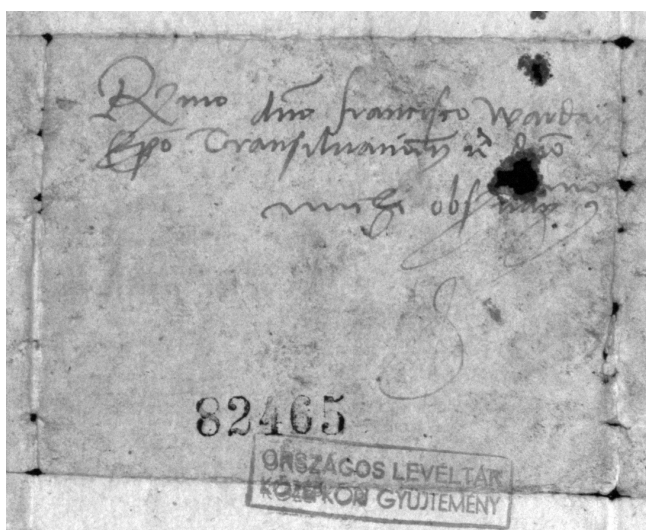 Rmo dno francisco Wardai
Epo Transiluanien̄ et dno
michi obser
82465
ORSZÁGOS LEVÉLTÁR
KÖZÉPKORI GYŰJTEMÉNY